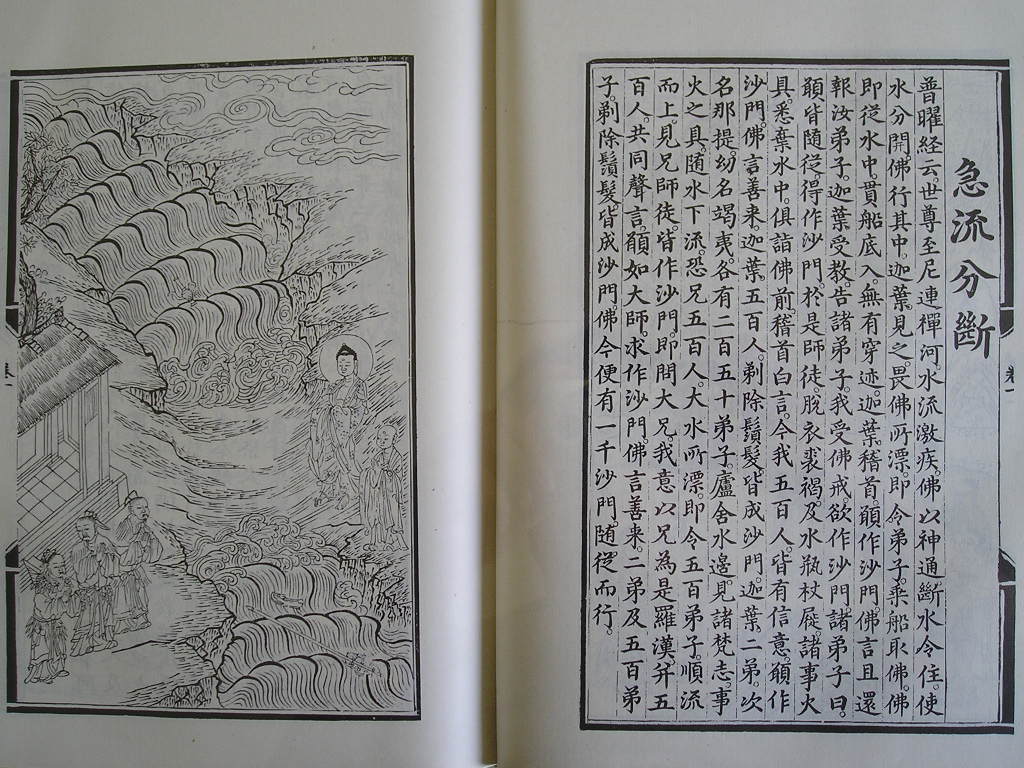 急流分斷
普曜経云。世尊至尼連禪河。水流激疾。佛以神通斷水令住。使
水分開佛行其中。迦葉見之。畏佛所漂。即令弟子。乘船取佛。佛
即從水中。貫船底入。無有穿迹。迦葉稽首。願作沙門。佛言且還
報汝弟子。迦葉受教。告諸弟子。我受佛戒欲作沙門。諸弟子曰。
願皆隨從。得作沙門。於是師徒。脫衣裘褐。及水瓶杖屣。諸事火
具。悉棄水中。俱詣佛前。稽首白言。今我五百人。皆有信意。願作
沙門。佛言善来。迦葉。五百人。剃除鬚髮。皆成沙門。迦葉。二弟。次
名那提。幼名竭夷。各有二百五十弟子。廬舍水邊。見諸梵志事
火之具。隨水下流。恐兄五百人。大水所漂。即令五百弟子順流
而上。見兄師徒。皆作沙門。即問大兄。我意以兄為是羅漢。并五
百人。共同聲言。願如大師。求作沙門。佛言善来。二弟及五百弟
子。剃除鬚髮。皆成沙門佛今便有一千沙門。随從而行。
卷一
卷一